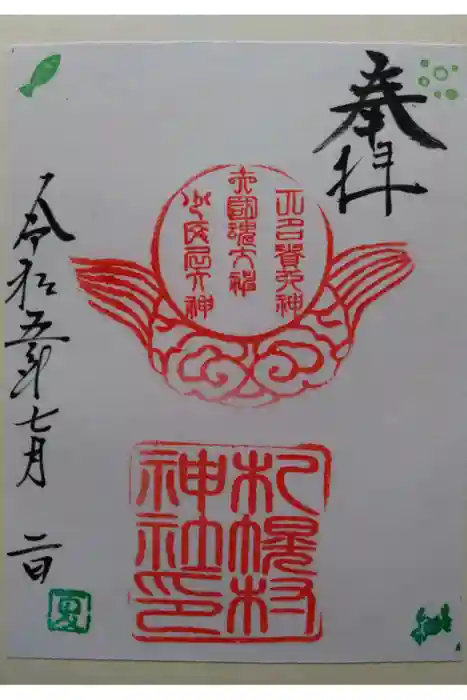 奉拝
大名貴大神
大國魂大神
少彦名大神
札幌村
神社印
令和五年七月二日
夏